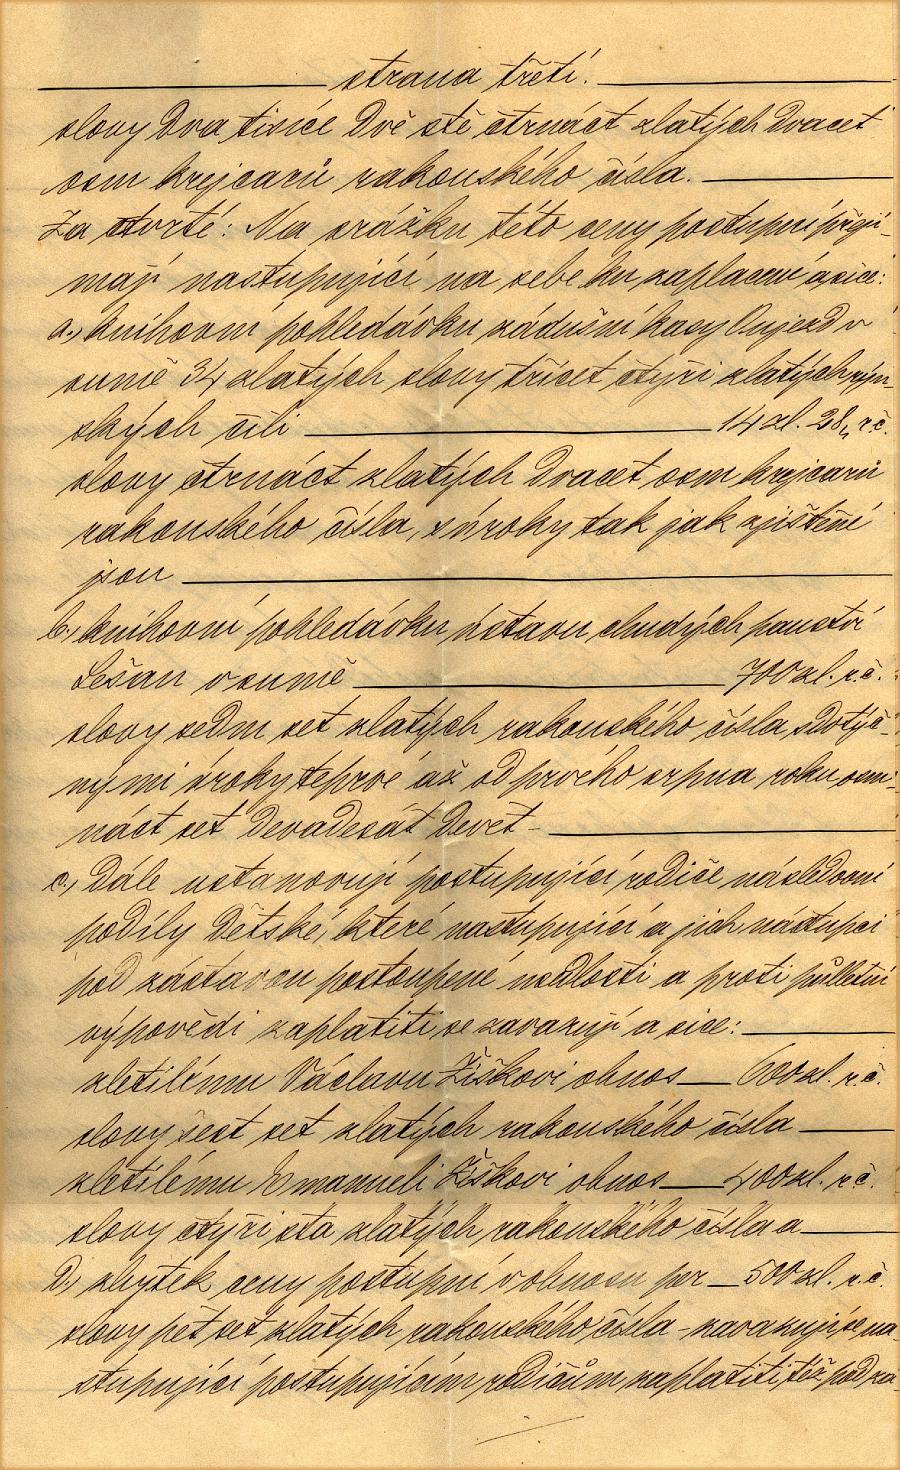 strana třetí.
slovy Dva tisíce Dvě stě čtrnáct zlatých Dvacet
osm krejcarů rakouského čísla.
Za čtvrté: Na srážku této ceny postupní přijí-
mají nastupující na sebe ku zaplacení a sice:
a., knihovní pohledávku zádušní kasy Oujezd v
sumě 34 zlatých slovy třicet čtyři zlatých rýn-
ských čili 14 zl. 28, r.č.
slovy čtrnáct zlatých Dvacet osm krejcarů
rakouského čísla, s úroky tak jak zjištěné
jsou
b., knihovní pohledávku ústavu chudých panství
Lešan v sumě 700 zl. r.č.
slovy sedm set zlatých rakouského čísla, s dotyč-
nými úroky teprvé až od prvého srpna roku osm-
náct set Devadesát Devět -
c., Dále ustanovují postupující rodiče následovní
podíly Dětské, které nastupující a jich nástupci
pod zástavou postoupené usdlosti a proti půlletní
výpovědi zaplatiti se zavazují a sice:
zletilému Václavu Žiškovi obnos 600 zl. r.č.
slovy šest set zlatých rakouského čísla
zletilému Emanueli Žiškovi obnos 400 zl. r.č.
slovy čtyři sta zlatých rakouského čísla a
D., zbytek ceny postupní v obnosu per 500 zl. r.č.
slovy pět set zlatých rakouského čísla - zavazují se na-
stupující postupujícím rodičům zaplatiti též pod zá-